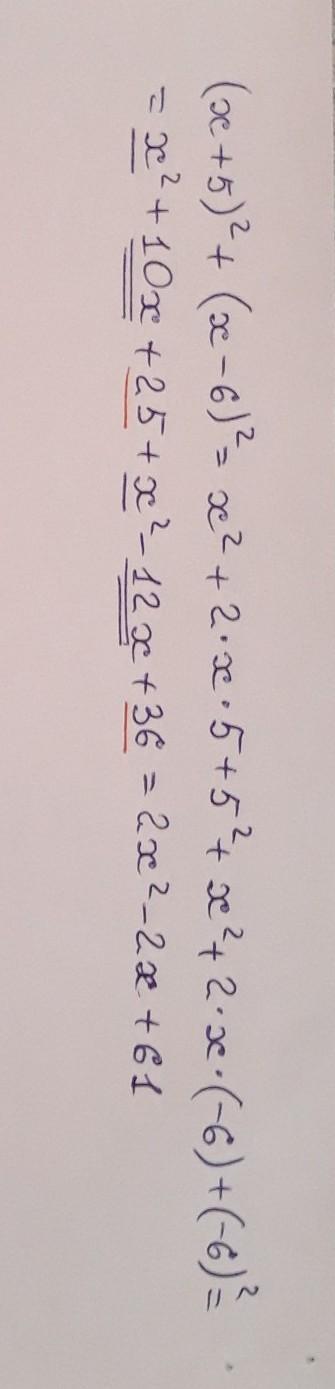 (x+5)² + (x-6)² = x² + 2·x·5 + 5² + x² + 2·x·(-6) + (-6)² =
= x² + 10x + 25 + x² - 12x + 36 = 2x² - 2x + 61